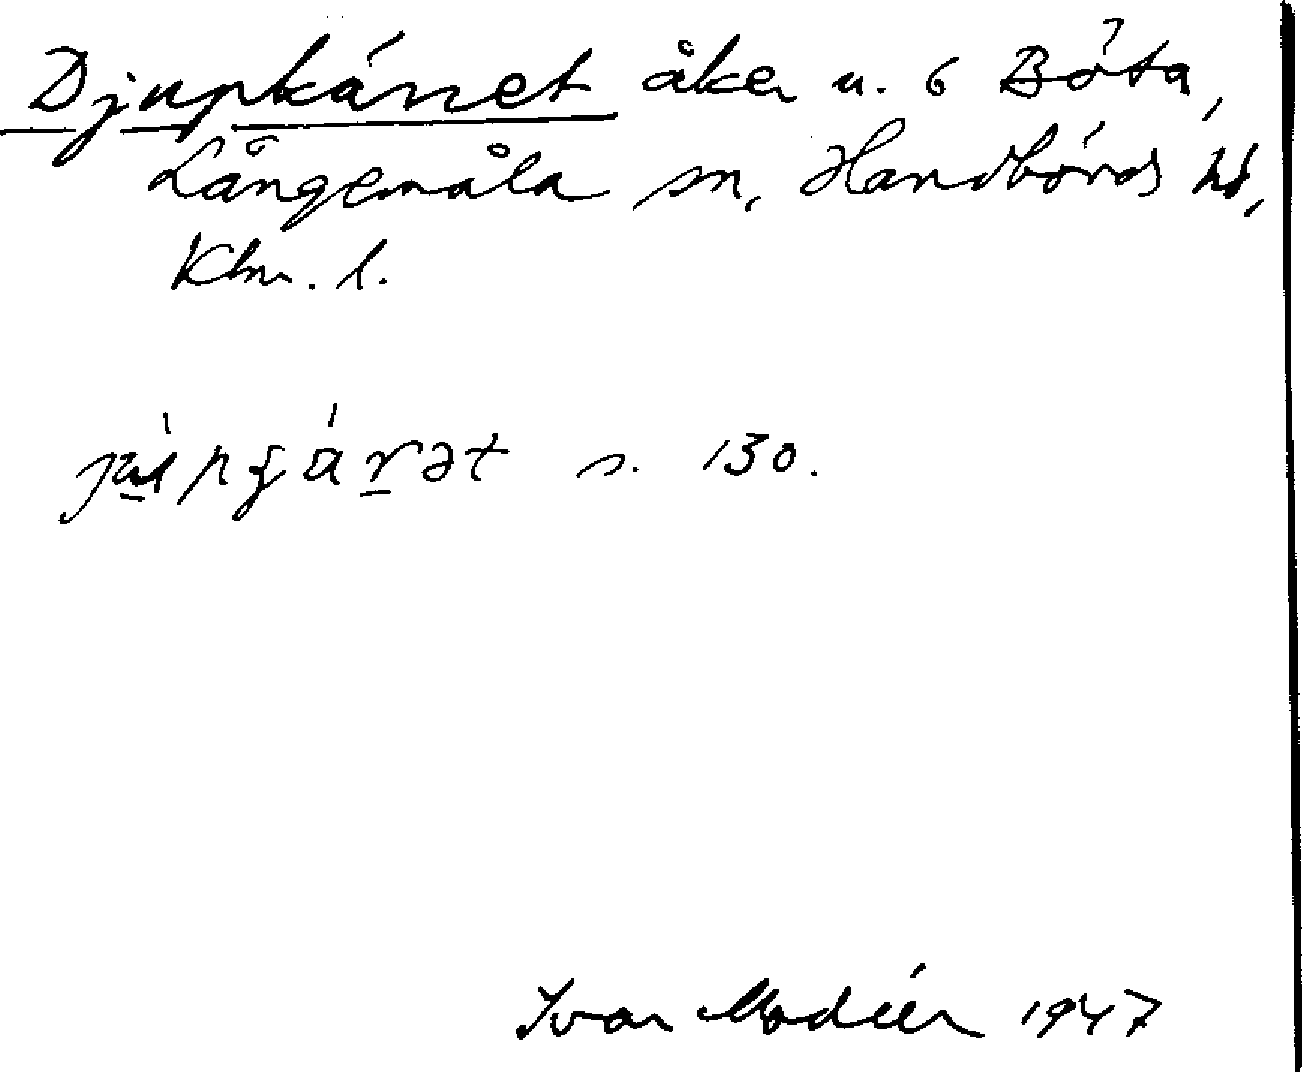 Djupkärret åker u. 6 Böta,
Långemåla sn, Handbörds hd,
Klm. l.
s. 130.
Ivar Modéer 1947